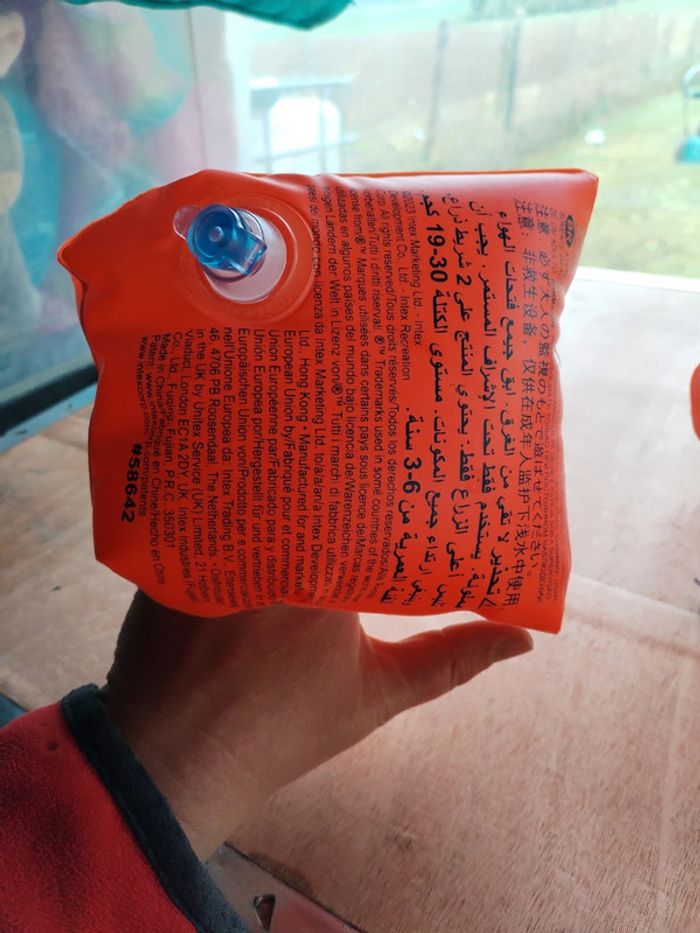 注意：必ず大人の監視のもとで遊ばせてください。
注意：非救生设备，仅供在成年人监护下浅水中使用
تحذير: لا تقي من الغرق. ابق جميع فتحات الهواء
مملوءة. يستخدم فقط تحت الإشراف المستمر. يجب أن
أعلى الذراع فقط. يحتوي المنتج على 2 شريط ذراع.
ارتداء جميع المكونات. مستوى الكتلة 19-30 كجم
العمرية من 3-6 سنة.
©2023 Intex Marketing Ltd. - Intex
Development Co., Ltd. - Intex Recreation
Corp. All rights reserved/Tous droits réservés/Todos los derechos reservados/Alle
vorbehalten/Tutti i diritti riservati. ®™ Trademarks used in some countries of the
cense from/®™ Marques utilisées dans certains pays sous licence de/Marcas
utilizadas en algunos países del mundo bajo licencia de/Warenzeichen
einigen Ländern der Welt in Lizenz von/®™ Tutti i marchi di fabbrica utilizzati
paesi del mondo con licenza da Intex Marketing Ltd. to/à/a/an/a Intex Development
Ltd., Hong Kong • Manufactured for and
European Union by/Fabriqué pour et
Union Européenne par/Fabricado para y
Unión Europea por/Hergestellt für und vertrieben in
Europäischen Union von/Prodotto per e
nell'Unione Europea da: Intex Trading B.V.,
46, 4706 PB Roosendaal, The Netherlands •
in the UK by Unitex Service (UK) Limited. 21 Holborn
Viaduct, London EC1A 2DY, UK. Intex Industries
Co., Ltd., Fugong, Fujian, P.R.C. 350301
Made in China/Fabriqué en Chine/Hecho en China
Patent: www.intexcorp.com/patents
www.intexcorp.com
#58642